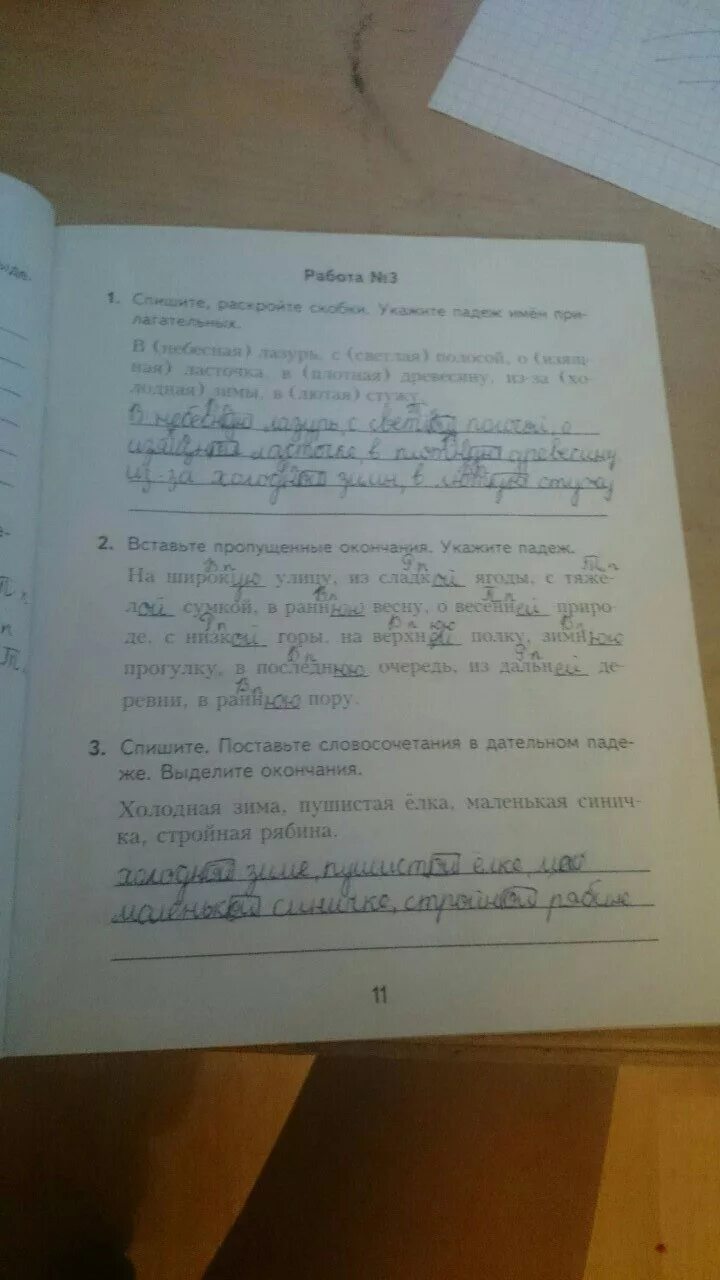 иде.
Работа №3
1. Спишите, раскройте скобки. Укажите падеж имён при-
лагательных.
В (небесная) лазурь, с (светлая) полосой, о (изящ-
ная) ласточка, в (плотная) древесину, из-за (хо-
лодная) зимы, в (лютая) стужу.
В небесную лазурь, с полосой, о
ласточке, в плотную древесину
из-за холодной зимы, в лютую стужу
2. Вставьте пропущенные окончания. Укажите падеж.
Вп Рп Тп
На широкую улицу, из сладкой ягоды, с тяже-
Вп Пп
лой сумкой, в раннюю весну, о весенней приро-
Рп Вп юю Вп
де, с низкой горы, на верхней полку, зимнюю
Вп Рп
прогулку, в последнюю очередь, из дальней де-
Вп
ревни, в раннюю пору.
3. Спишите. Поставьте словосочетания в дательном паде-
же. Выделите окончания.
Холодная зима, пушистая ёлка, маленькая синич-
ка, стройная рябина.
холодной зиме, пушистой ёлке,
маленькой синичке, стройной рябине
11